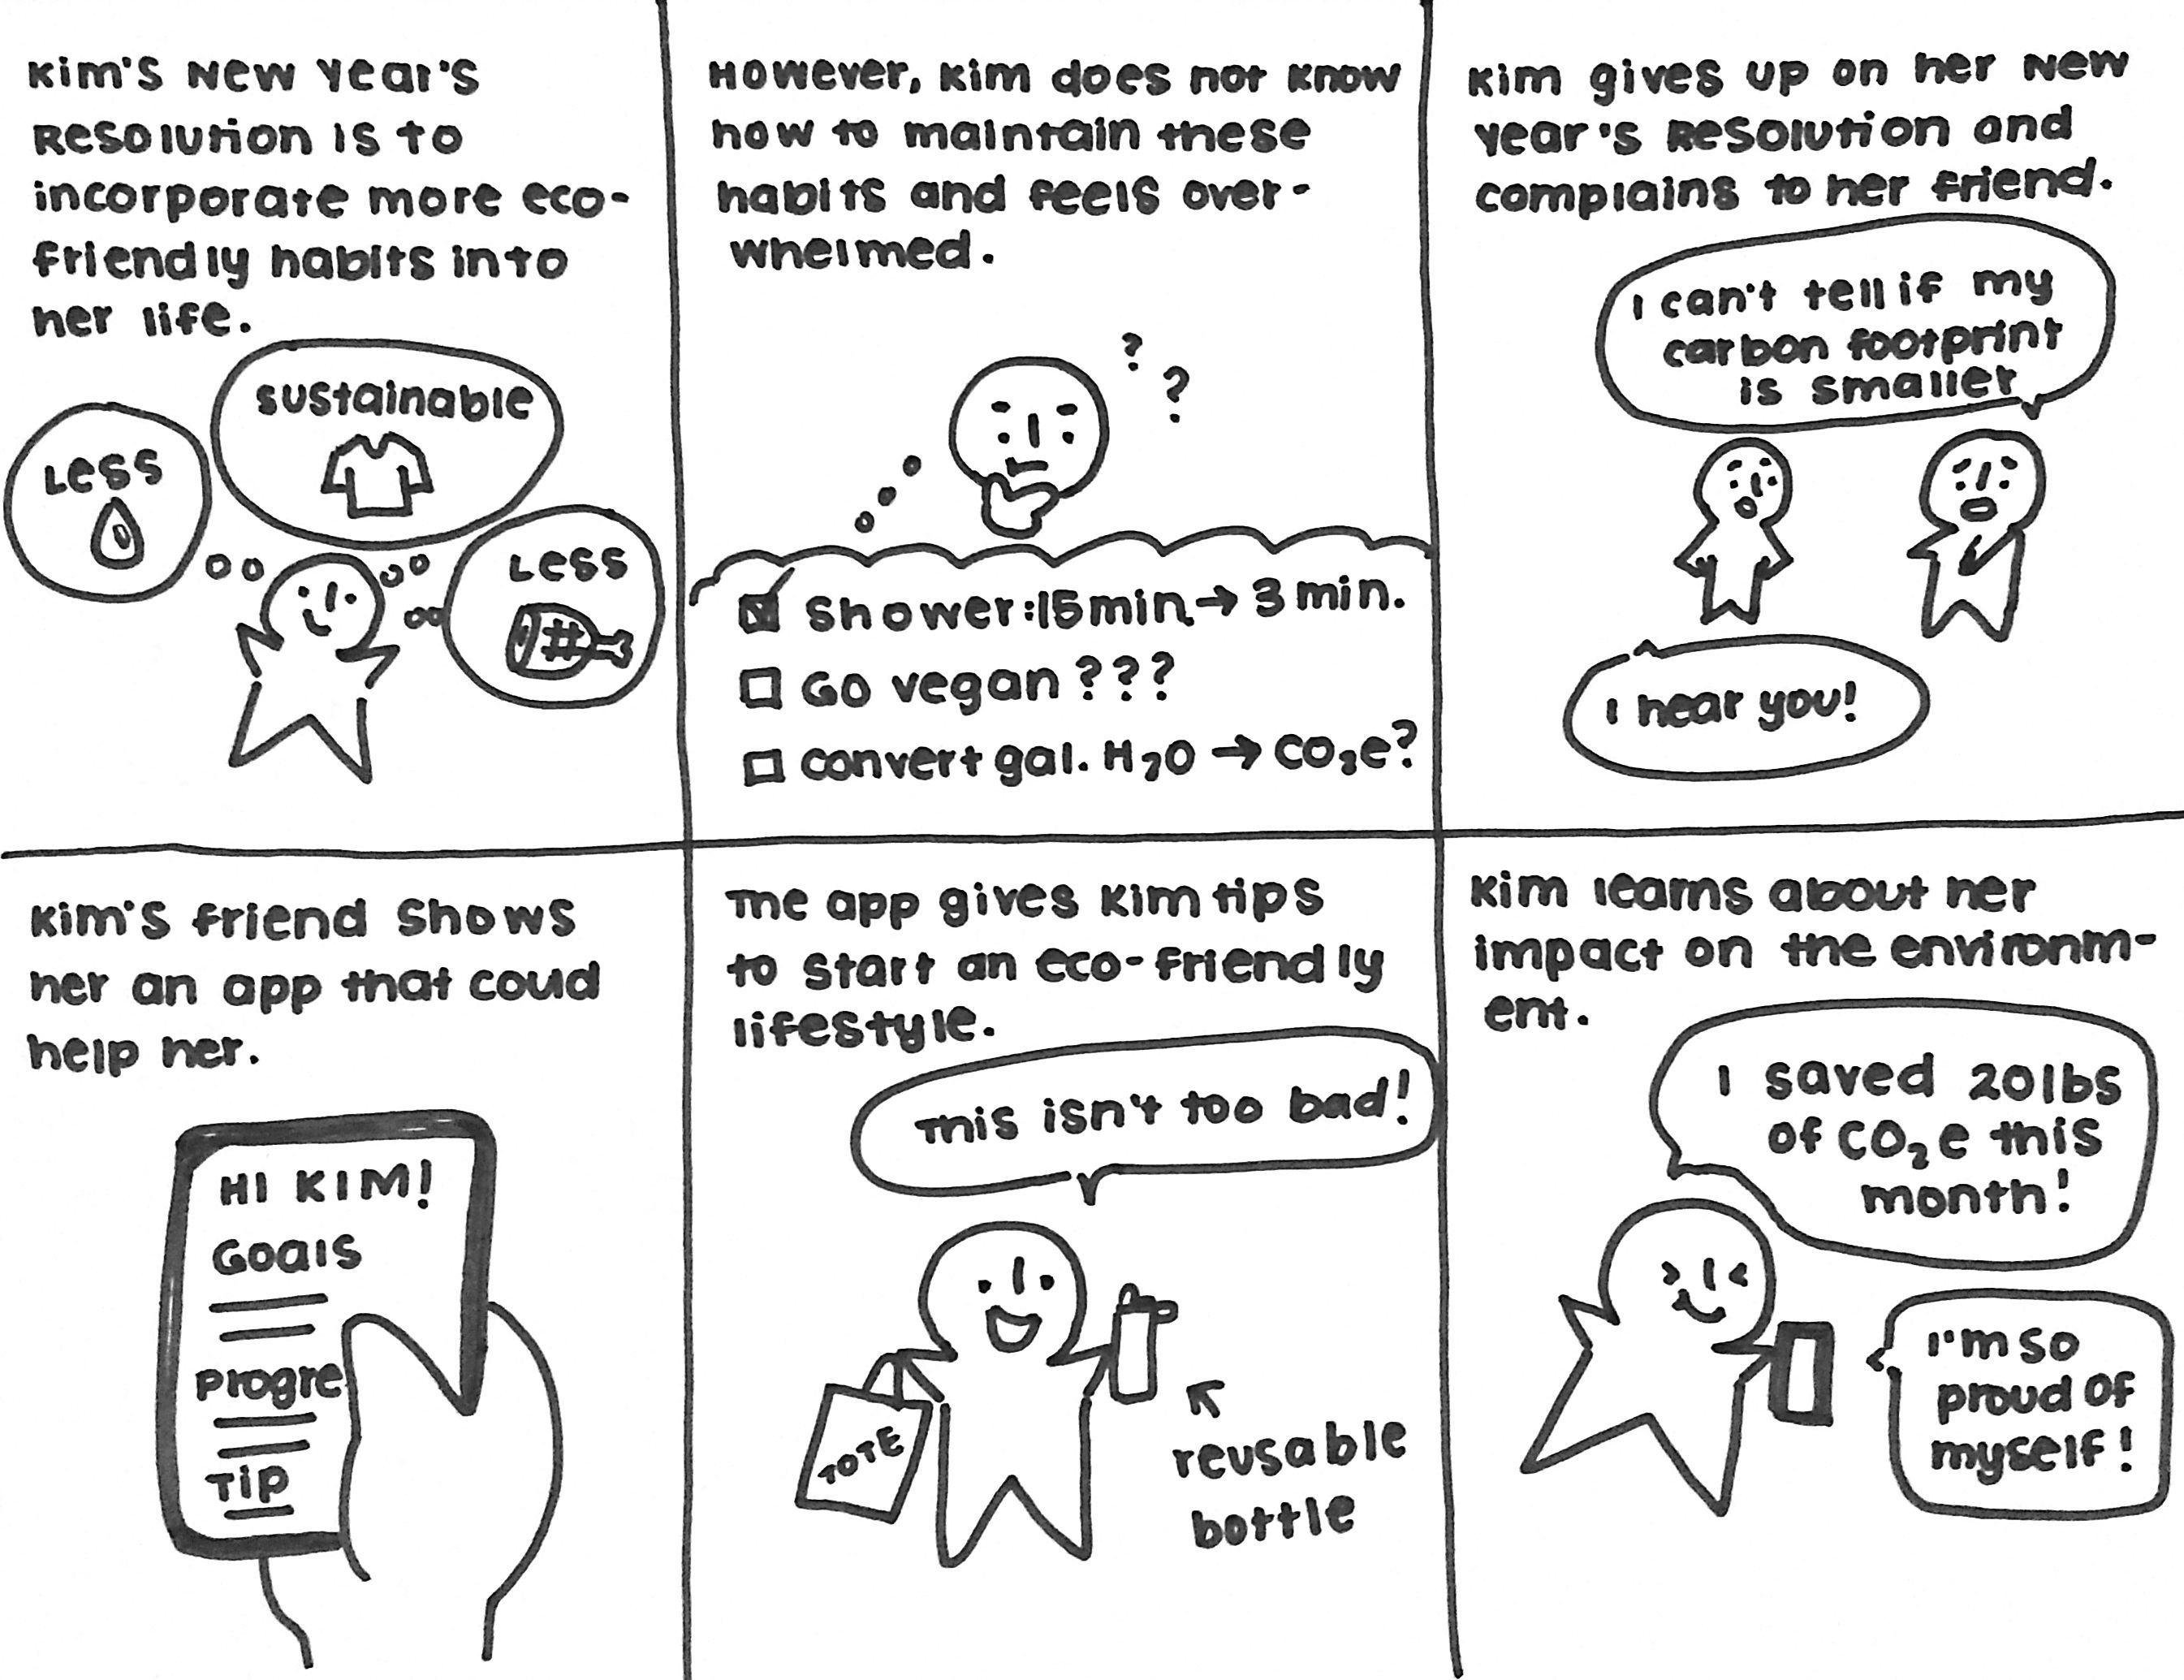 Kim's New Year's
Resolution is to
incorporate more eco-
friendly habits into
her life.
Less
sustainable
Less
However, Kim does not know
how to maintain these
habits and feels over-
whelmed.
? ?
Shower: 15 min. → 3 min.
Go vegan ???
convert gal. H₂O → CO₂e?
Kim gives up on her New
Year's Resolution and
complains to her friend.
I can't tell if my
carbon footprint
is smaller
I hear you!
Kim's friend shows
her an app that could
help her.
HI KIM!
Goals
Progre
Tip
The app gives Kim tips
to start an eco-friendly
lifestyle.
This isn't too bad!
TOTE
reusable
bottle
Kim learns about her
impact on the environm-
ent.
I saved 20lbs
of CO₂e this
month!
I'm so
proud of
myself!